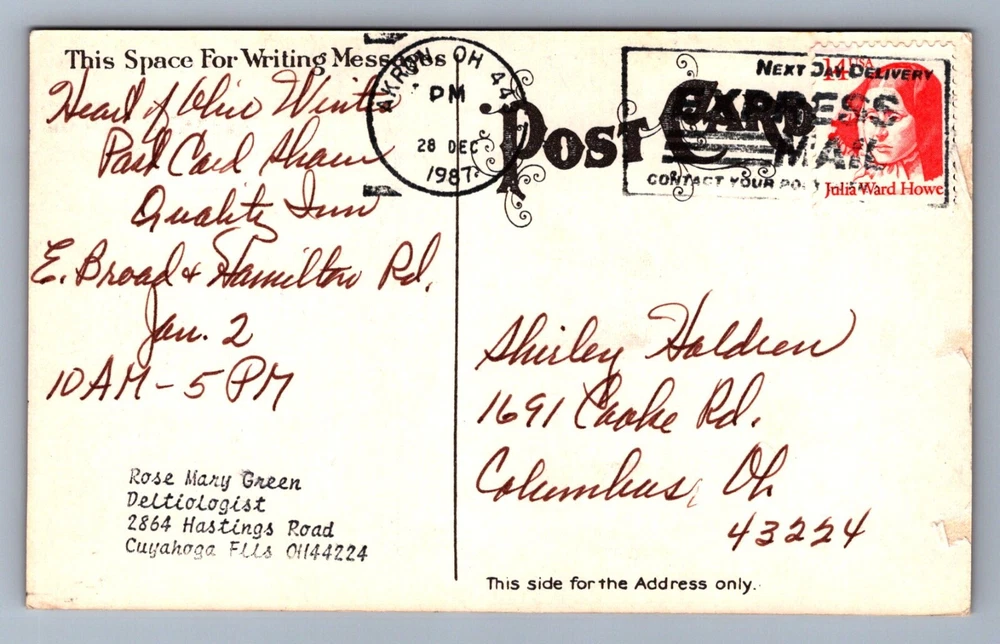 This Space For Writing Messages
Heart of Ohio Winter
Post Card Show
Quality Inn
E. Broad & Hamilton Rd.
Jan. 2
10 AM - 5 PM
Rose Mary Green
Deltiologist
2864 Hastings Road
Cuyahoga Flls OH44224
AKRON, OH 44
PM
28 DEC
1987
POST CARD
NEXT DAY DELIVERY
EXPRESS
MAIL
CONTACT YOUR
14 USA
Julia Ward Howe
Shirley Holdren
1691 Cooke Rd.
Columbus, Oh
43224
This side for the Address only.